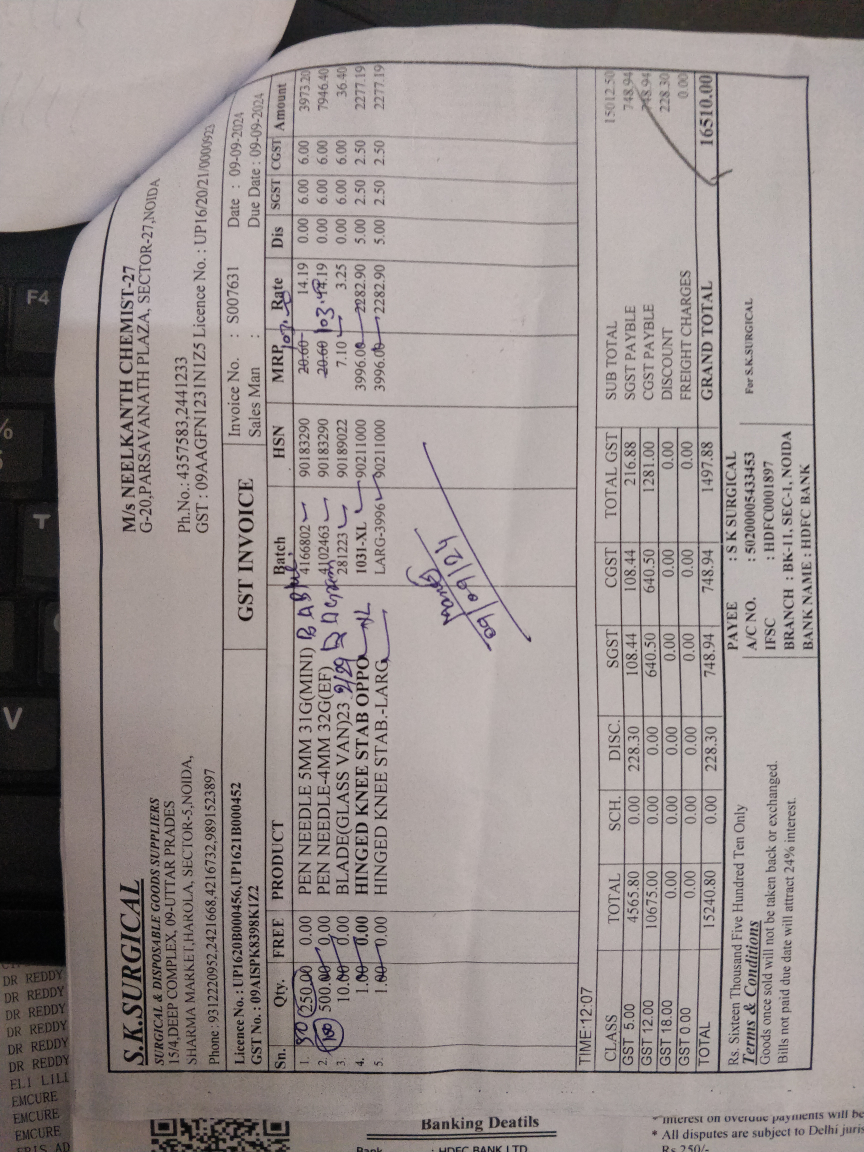 S.K.SURGICAL
SURGICAL & DISPOSABLE GOODS SUPPLIERS
15/4,DEEP COMPLEX, 09-UTTAR PRADES
SHARMA MARKET,HAROLA, SECTOR-5,NOIDA,
Phone : 9312220952,2421668,4216732,9891523897
M/s NEELKANTH CHEMIST-27
G-20,PARSAVANATH PLAZA, SECTOR-27,NOIDA
Ph.No.: 4357583,2441233
GST : 09AAGFN1231N1Z5 Licence No. : UP16/20/21/0000923
Licence No. : UP1620B000456,UP1621B000452
GST No. : 09AISPK8398K1Z2
GST INVOICE
Invoice No. : S007631 Date : 09-09-2024
Sales Man : Due Date : 09-09-2024
Sn. Qty. FREE PRODUCT Batch HSN MRP Rate Dis SGST CGST Amount
1. 250.00 0.00 PEN NEEDLE 5MM 31G(MINI) 4166802 90183290 20.60 14.19 0.00 6.00 6.00 3973.20
2. 500.00 0.00 PEN NEEDLE-4MM 32G(EF) 4102463 90183290 20.60 14.19 0.00 6.00 6.00 7946.40
3. 10.00 0.00 BLADE(GLASS VAN)23 2/29 281223 90189022 7.10 3.25 0.00 6.00 6.00 36.40
4. 1.00 0.00 HINGED KNEE STAB OPPO XL 1031-XL 90211000 3996.00 2282.90 5.00 2.50 2.50 2277.19
5. 1.00 0.00 HINGED KNEE STAB.-LARG LARG-3996 90211000 3996.00 2282.90 5.00 2.50 2.50 2277.19
50
100
103.
09/09/24
TIME:12:07
CLASS TOTAL SCH. DISC. SGST CGST TOTAL GST
GST 5.00 4565.80 0.00 228.30 108.44 108.44 216.88
GST 12.00 10675.00 0.00 0.00 640.50 640.50 1281.00
GST 18.00 0.00 0.00 0.00 0.00 0.00 0.00
GST 0.00 0.00 0.00 0.00 0.00 0.00 0.00
TOTAL 15240.80 0.00 228.30 748.94 748.94 1497.88
SUB TOTAL 15012.50
SGST PAYBLE 748.94
CGST PAYBLE 748.94
DISCOUNT 228.30
FREIGHT CHARGES 0.00
GRAND TOTAL 16510.00
Rs. Sixteen Thousand Five Hundred Ten Only
Terms & Conditions
Goods once sold will not be taken back or exchanged.
Bills not paid due date will attract 24% interest.
PAYEE : S K SURGICAL
A/C NO. : 50200005433453
IFSC : HDFC0001897
BRANCH : BK-11, SEC-1, NOIDA
BANK NAME : HDFC BANK
For S.K.SURGICAL
Banking Deatils
Bank : HDFC BANK LTD
interest on overdue payments will be
* All disputes are subject to Delhi juris
Rs 250/-
DR REDDY
DR REDDY
DR REDDY
DR REDDY
DR REDDY
DR REDDY
ELI LILL
EMCURE
EMCURE
EMCURE
F4
%
5
T
V